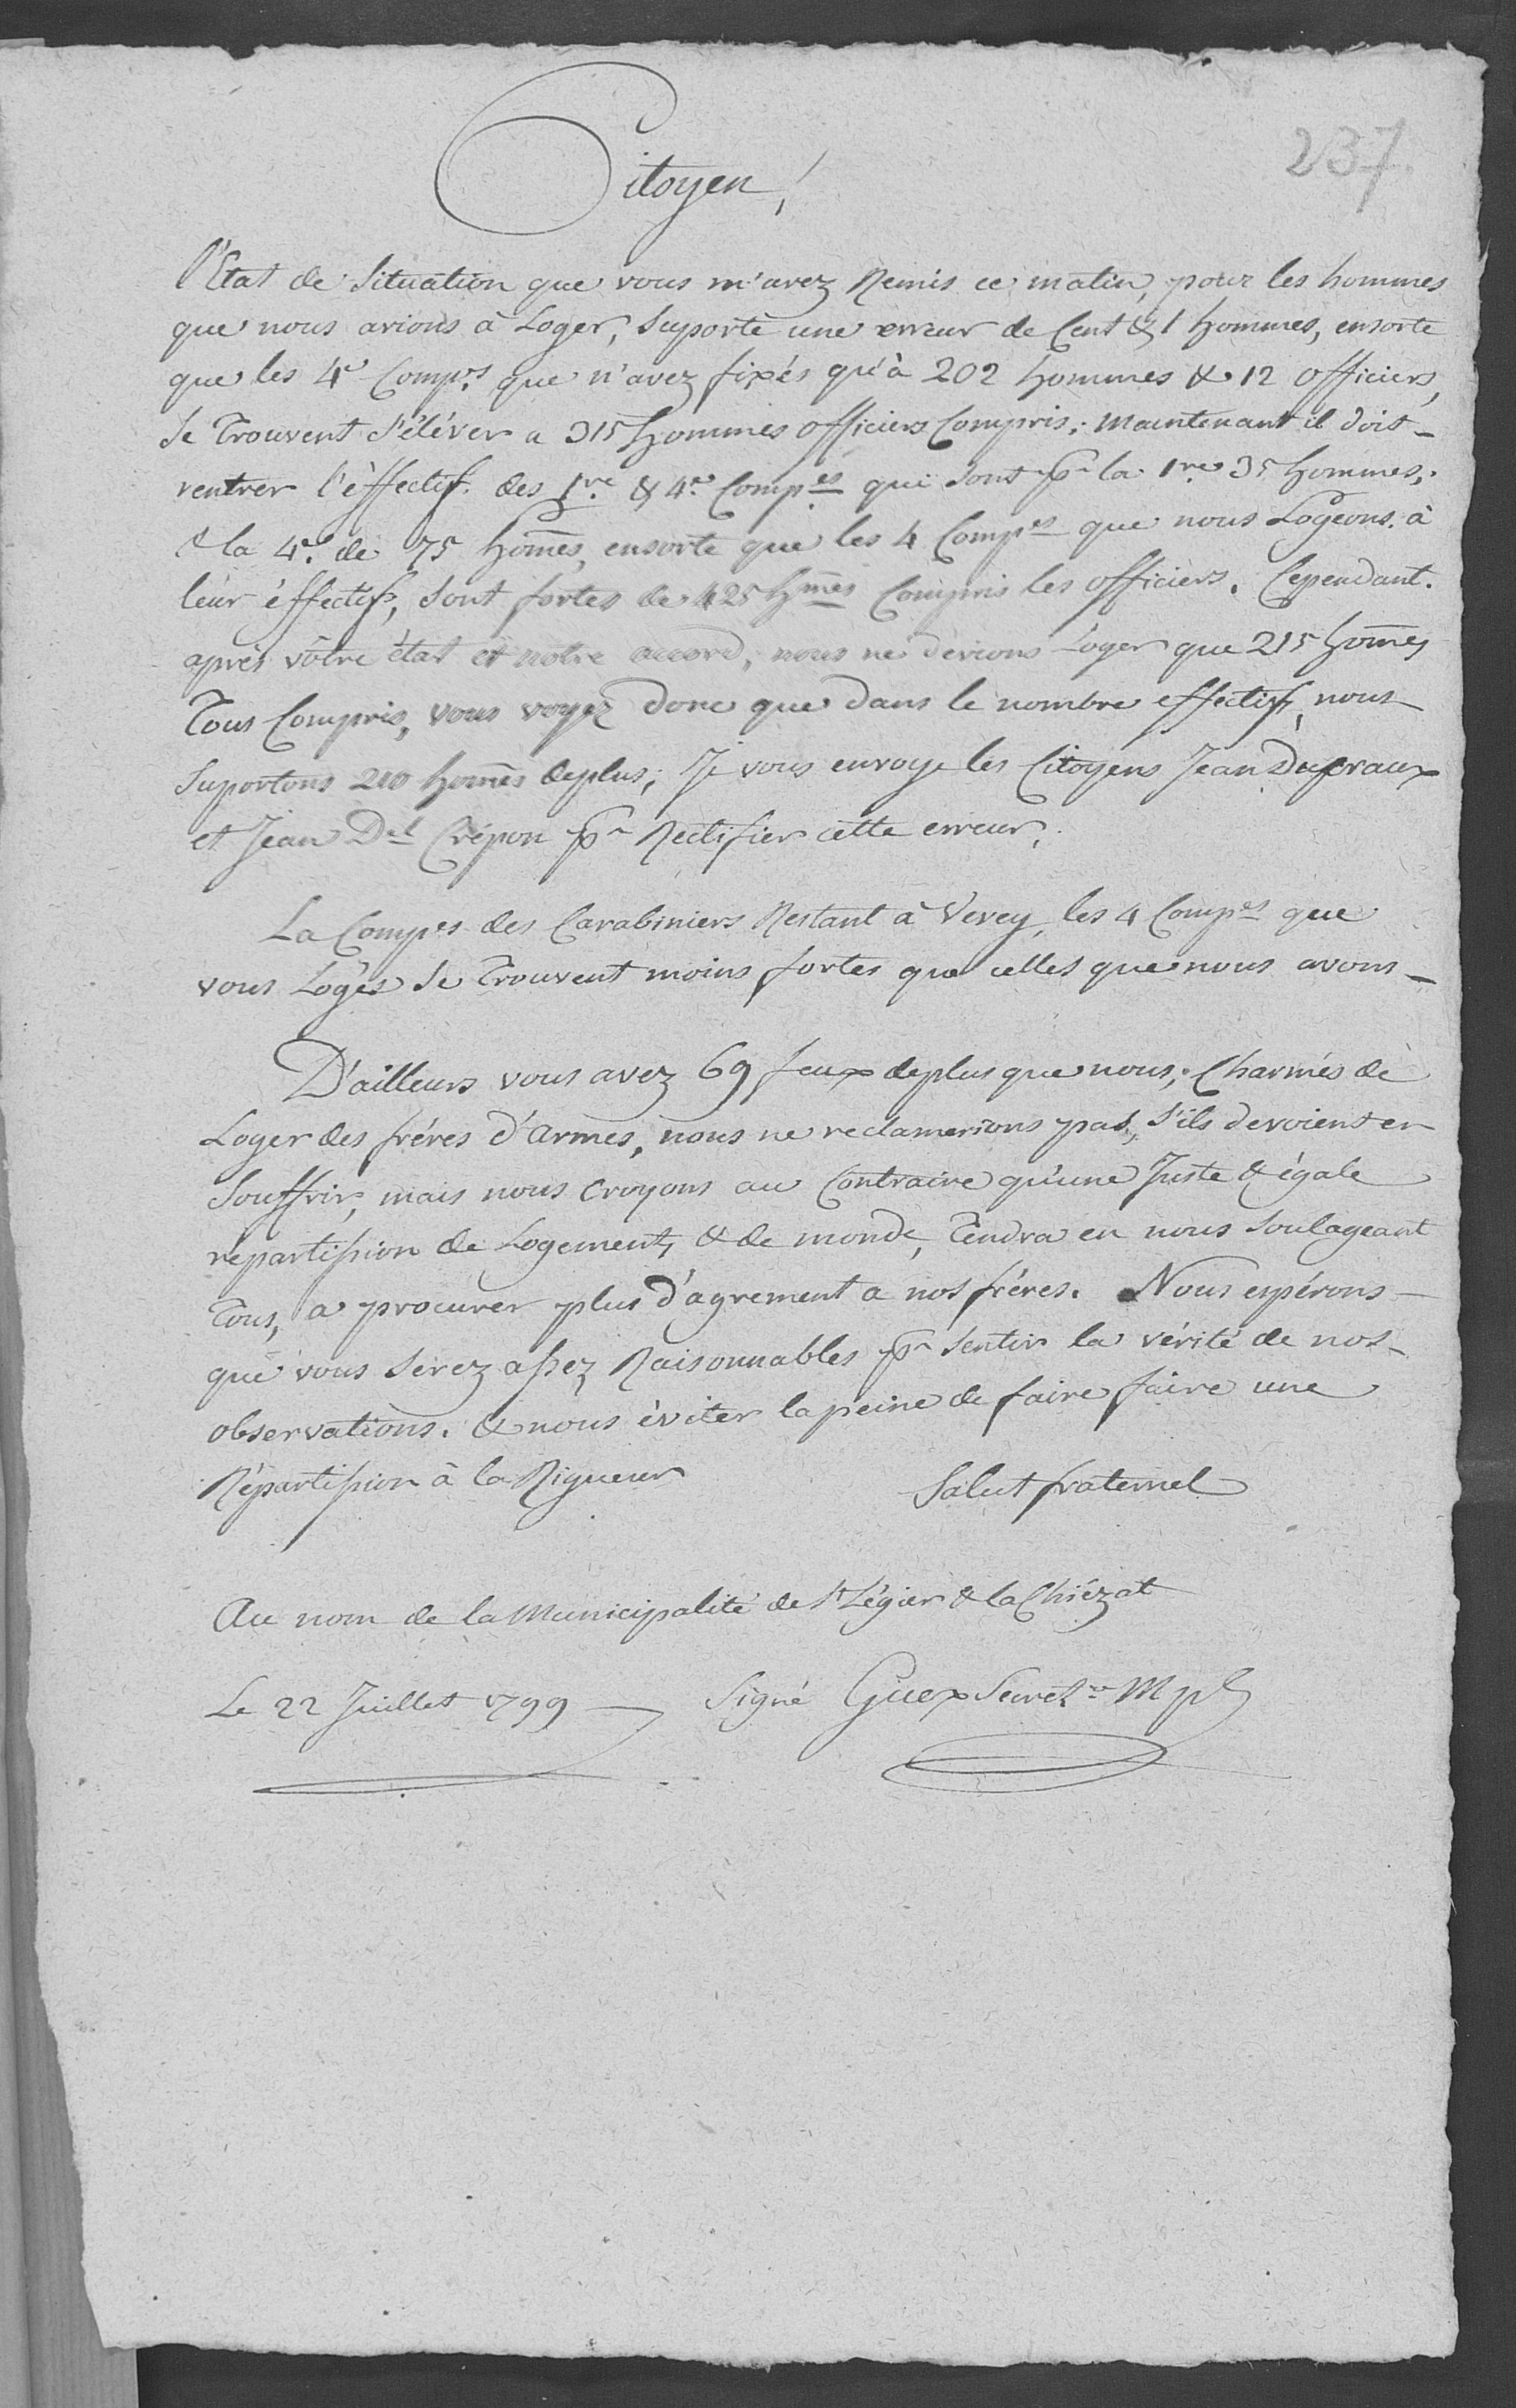 237
Citoyen!
l'Etat de Situation que vous m'avez Remis ce matin, pour les hommes
que nous avions à Loger, Suporte une erreur de Cent & 1 hommes, ensorte
que les 4e Comp.s que n'avez fixés qu'à 202 hommes & 12 officiers,
Se Trouvent S'éléver a 315 hommes officiers Compris; Maintenant il doit
rentrer l'éffectif des 1re & 4e Comp.es qui Sont pr la 1re 35 hommes,
& la 4e de 75 hom̄es, ensorte que les 4 Comp.es que nous Logeons à
leur éffectif, Sont fortes de 425 hmes Compris les officiers. Cependant
après vôtre état et notre accord, nous ne devions Loger que 215 hom̄es
Tous Compris, vous voyez donc que dans le nombre effectif, nous
Suportons 210 hom̄es deplus; Je vous envoye les Citoyens Jean Dupraux
et Jean Dl Crépon pr Rectifier cette erreur.
La Comp.es des Carabiniers Restant à Vevey, les 4 Comp.es que
vous Logés Se Trouvent moins fortes que celles que nous avons
D'ailleurs vous avez 69 feux deplus que nous; Charmés de
Loger des fréres d'Armes, nous ne reclamerions pas, S'ils devoient en
Souffrir, mais nous croyons au Contraire qu'une Juste & égale
repartission de Logement, & de monde, Tendra en nous Soulageant
Tous, a procurer plus d'agrement a nos fréres. Nous espérons
que vous Serez assez Raisonnables pr Sentir la vérité de nos
observations. & nous éviter la peine de faire faire une
Répartission à la Rigueur
Salut fraternel
Au nom de la Municipalité de St Légier & la Chiézat
Le 22 Juillet 1799
Signé Guex Secretre Mpl